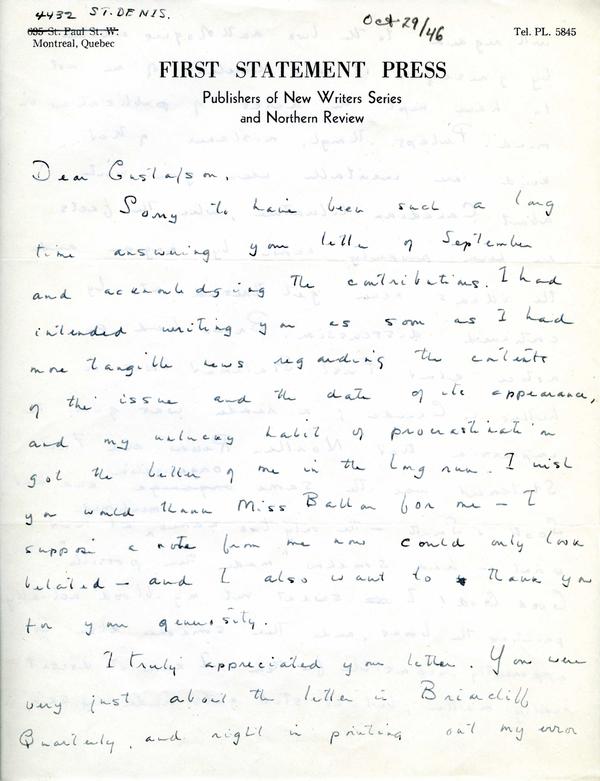 4432 ST. DENIS.
Oct 29/46
695 St. Paul St. W.
Tel. PL. 5845
Montreal, Quebec
FIRST STATEMENT PRESS
Publishers of New Writers Series
and Northern Review
Dear Gustafson,
Sorry to have been such a long
time answering your letter of September
and acknowledging the contributions. I had
intended writing you as soon as I had
more tangible news regarding the contents
of the issue and the date of its appearance,
and my unlucky habit of procrastination
got the better of me in the long run. I wish
you would thank Miss Ballon for me – I
suppose a note from me now could only look
belated – and I also want to thank you
for your generosity.
I truly appreciated your letter. You were
very just about the letter in Briarcliff
Quarterly, and right in printing out my error